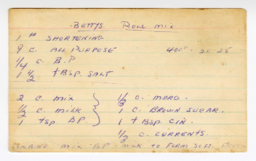 BETTYS ROLL MIX
1 # SHORTENING
9 C. ALL PURPOSE 400° - 20 25
1/4 C B.P
1 1/2 TBSP. SALT
2 C. MIX 1/2 C. MARG.
1/2 C. MILK 1 C. BROWN SUGAR.
1 TSP BP 1 TBSP CIN.
1/2 C. CURRENTS.
MIX BP MILK TO FORM